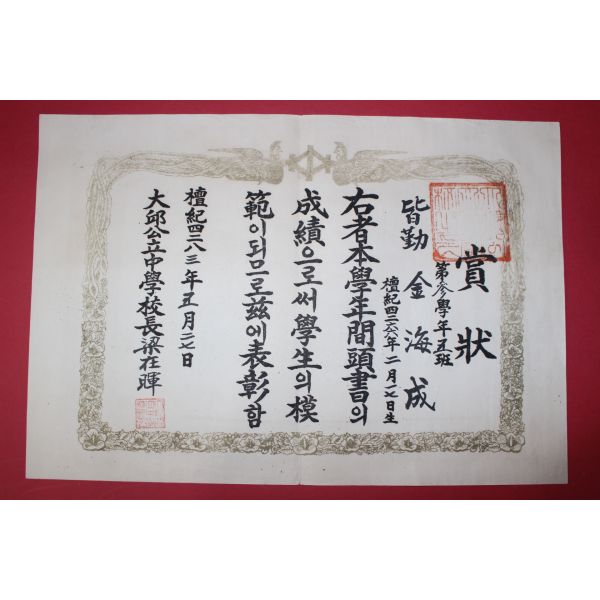 賞狀
第參學年五班
皆勤 金海成
檀紀四二六六年二月一七日生
右者本學年間頭書의
成績으로써學生의模
範이되므로玆에表彰함
檀紀四二八三年五月二七日
大邱公立中學校長梁在暉